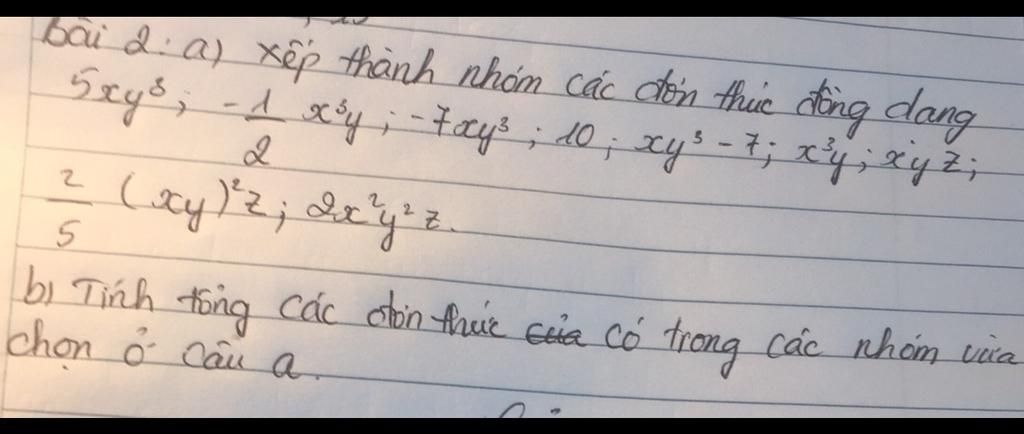 bài 2: a) xếp thành nhóm các đơn thức đồng dạng
5xy³; -1/2 x³y; -7xy³; 10; xy³ - 7; x³y; xyz;
2/5 (xy)²z; 2x²y²z.
b) Tính tổng các đơn thức của có trong các nhóm vừa
chọn ở câu a.